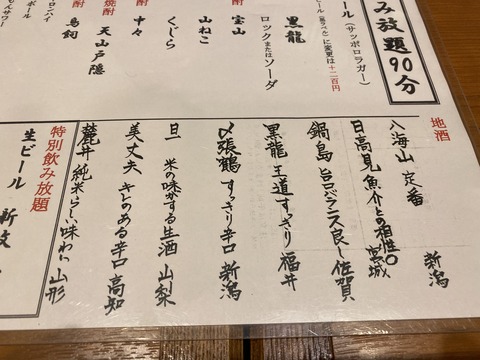 み放題90分
ール（サッポロラガー）
に変更は＋二百円
黒龍
ロックまたはソーダ
宝山
山ねこ
くじら
焼酎
中々
天山戸隠
酎
鳥飼
ロンハイ
ボール
もんサワー
地酒
八海山 定番 新潟
日高見 魚介との相性〇 宮城
鍋島 旨口バランス良し 佐賀
黒龍 王道すっきり 福井
〆張鶴 すっきり辛口 新潟
旦 米の味がする生酒 山梨
美丈夫 キレのある辛口 高知
麓井 純米らしい味わい 山形
特別飲み放題
生ビール